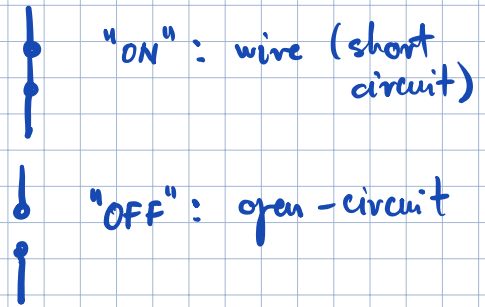 "ON": wire (short
circuit)
"OFF": open-circuit